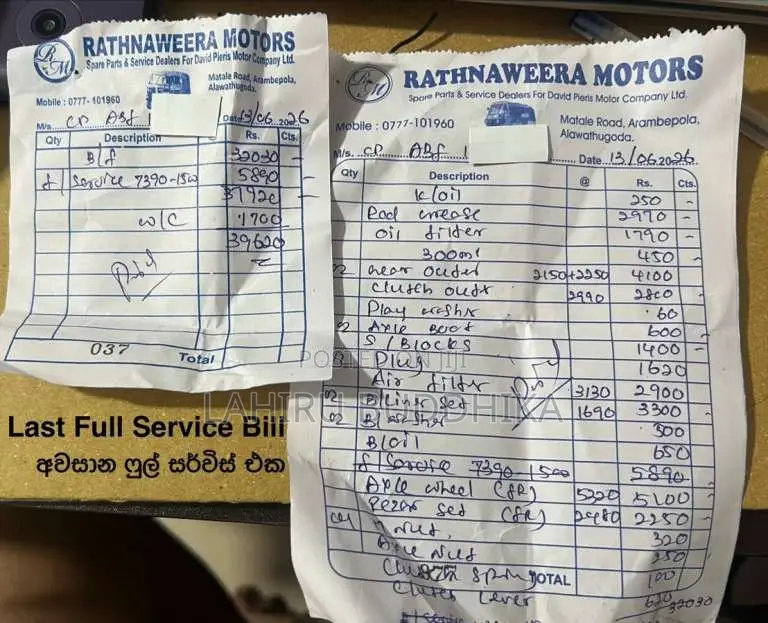 RATHNAWEERA MOTORS
Spare Parts & Service Dealers For David Pieris Motor Company Ltd.
RM
Matale Road, Arambepola,
Alawathugoda.
Mobile : 0777-101960
M/s. CP ABJ 1 Date 13/06 2026
Qty Description Rs. Cts.
B/f 32030 -
f/ Service 7390-1500 5890 -
37920 -
W/C 1700
39620
Paid
037
Total
Last Full Service Bill
අවසාන ෆුල් සර්විස් එක
RATHNAWEERA MOTORS
Spare Parts & Service Dealers For David Pieris Motor Company Ltd.
Matale Road, Arambepola,
Alawathugoda.
Mobile : 0777-101960
M/s. CP ABJ 1 Date 13/06 2026
Qty Description @ Rs. Cts.
K/oil 250 -
2970 -
oil filter 1790 -
300ml 450 -
02 2150+2250 4100
2990 2800 -
60
02 Axle Boot 600 -
S/Blocks 1400 -
Plug 1620
Air filter 3130 2900
02 B/Liner Set 1690 3300
02 B/washer 300
B/oil 650
f/ Service 7390-1500 5890
Axle wheel (fR) 5220 5100 -
Set (fR) 2480 2250 -
04 Nut, 320
Axle Nut 250
Clutch Spring TOTAL 100
Clutch Lever 620
32030
POSTED ON JIJI
LAHIRU BUDDHIKA